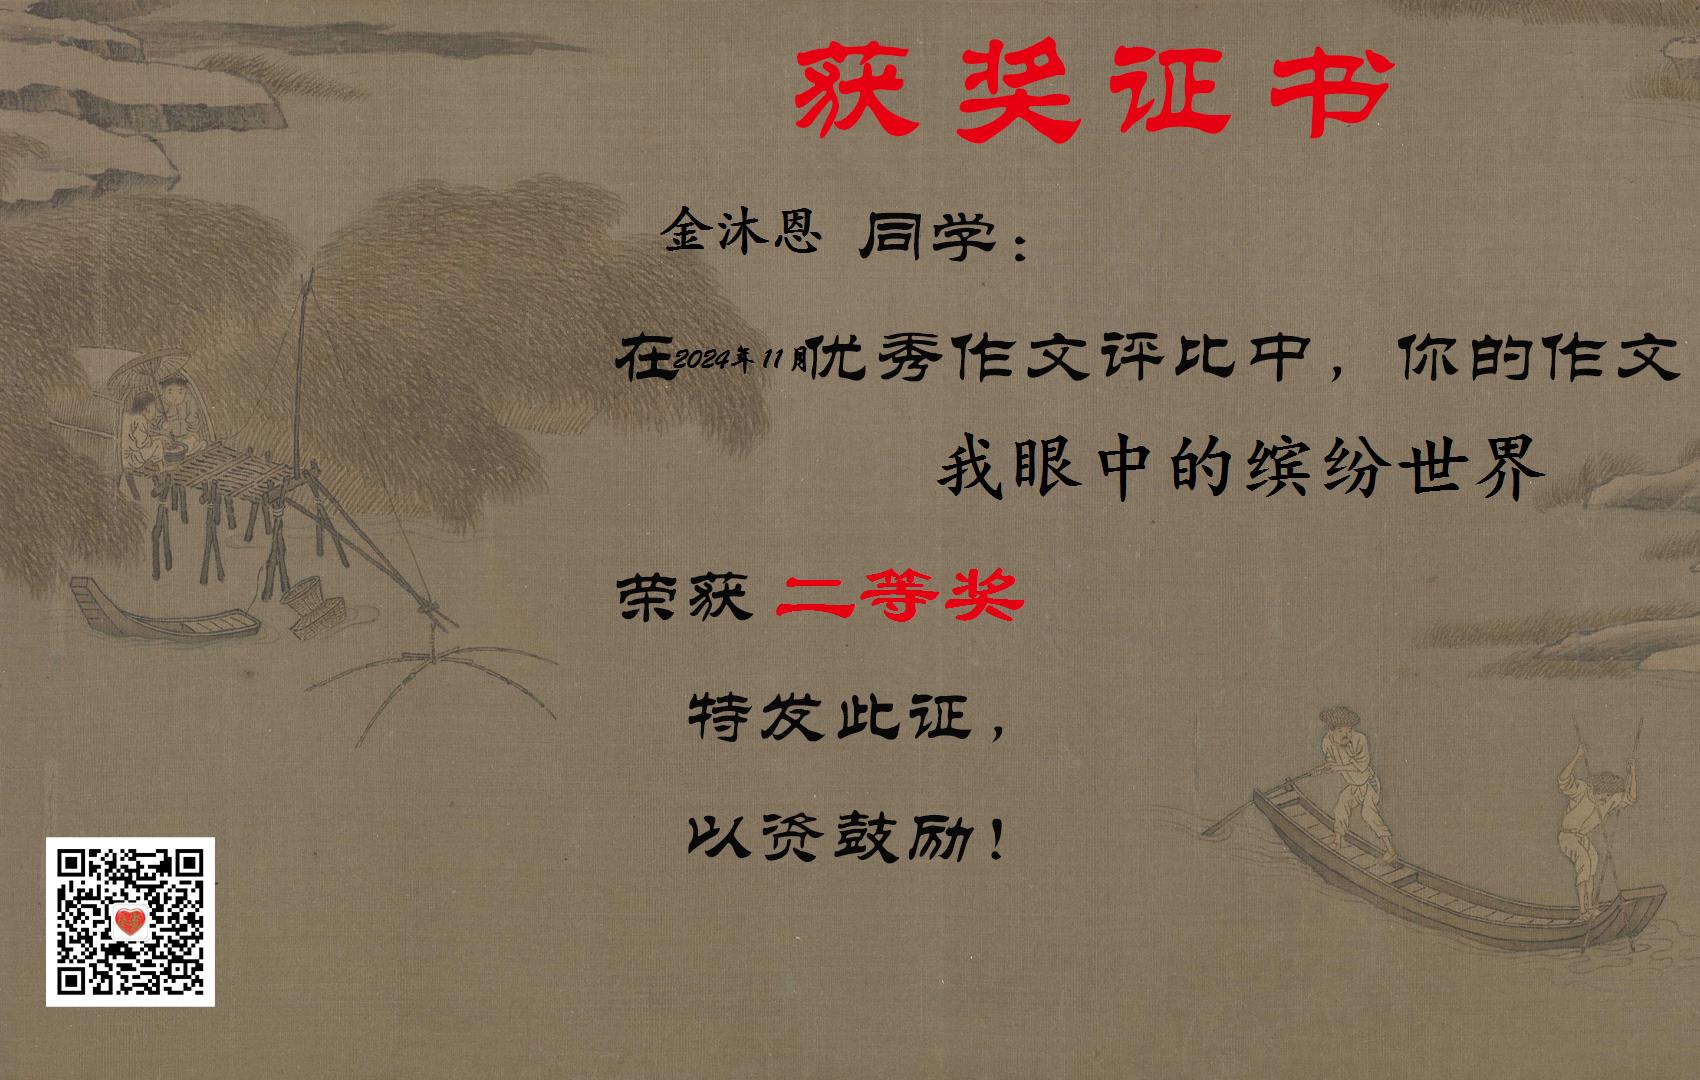 获奖证书
金沐恩 同学：
在2024年11月优秀作文评比中，你的作文
我眼中的缤纷世界
荣获 二等奖
特发此证，
以资鼓励！